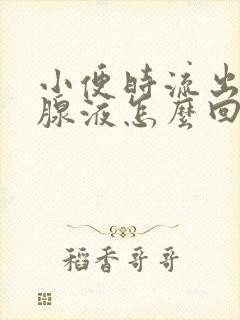 小便時流出
腺液怎麼回
稻香哥哥